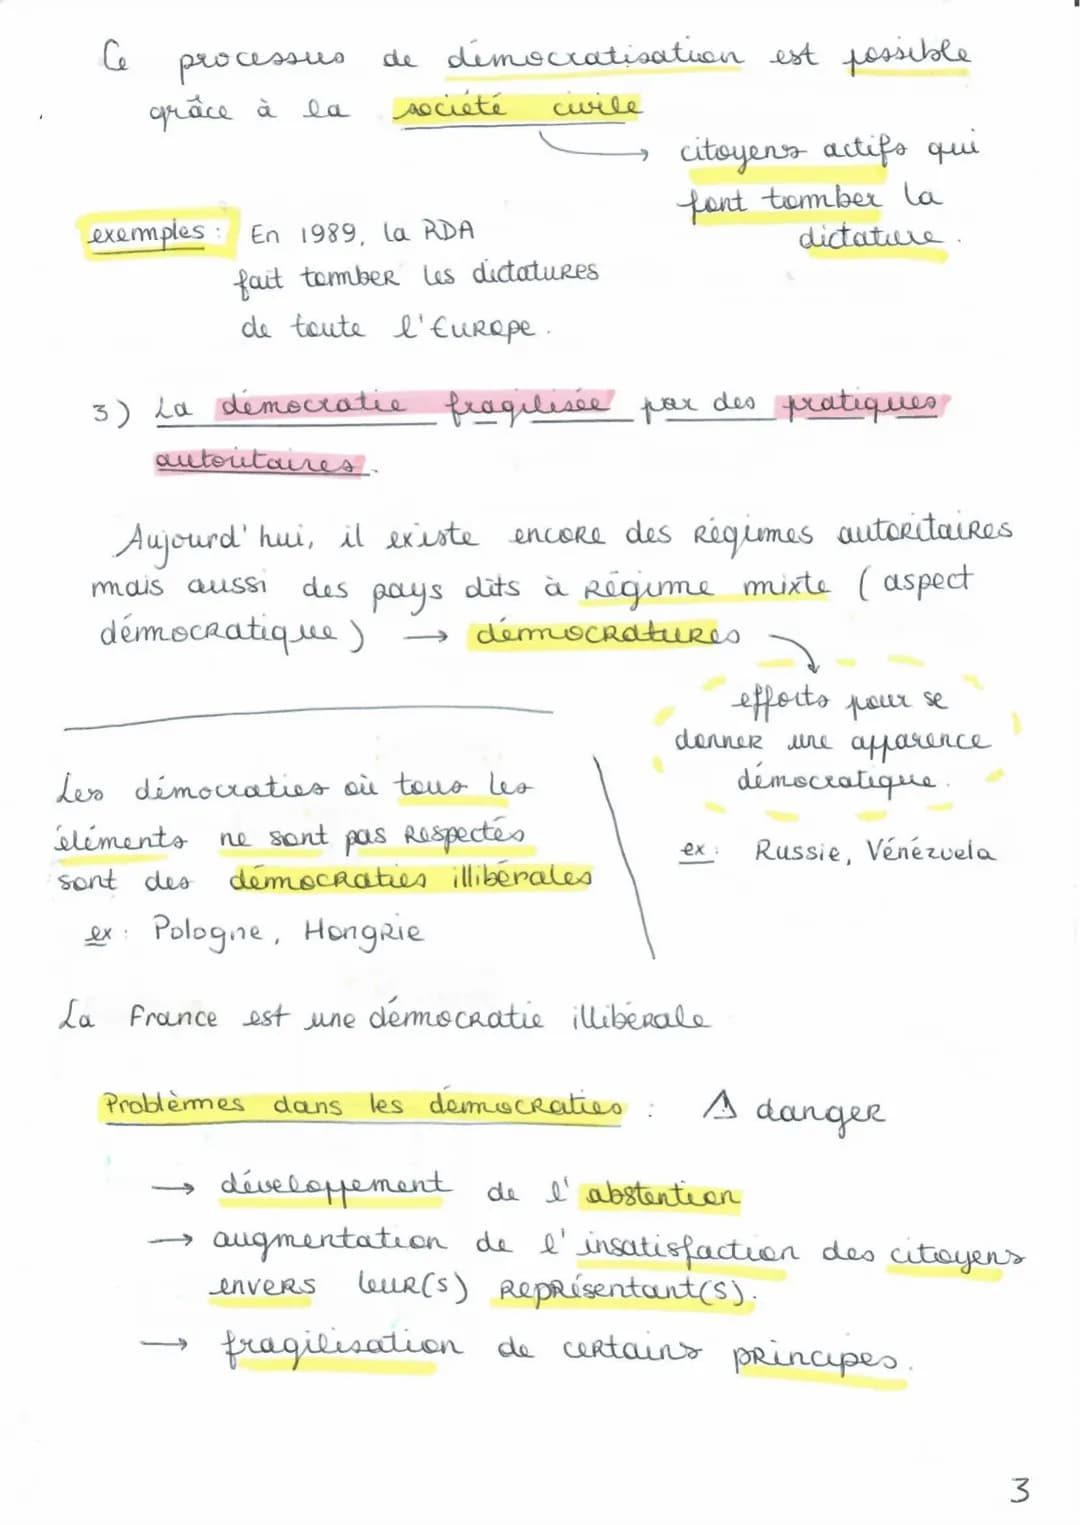 Ce processus de démocratisation est possible
grâce à la société civile
→ citoyens actifs qui
font tomber la
dictature.
exemples : En 1989, la RDA
fait tomber les dictatures
de toute l'Europe.
3) La démocratie fragilisée par des pratiques
autoritaires.
Aujourd'hui, il existe encore des régimes autoritaires
mais aussi des pays dits à régime mixte (aspect
démocratique) → démocratures
efforts pour se
donner une apparence
démocratique.
ex : Russie, Vénézuela
Les démocraties où tous les
éléments ne sont pas respectés
sont des démocraties illibérales
ex : Pologne, Hongrie
La France est une démocratie illibérale
Problèmes dans les démocraties : ⚠ danger
→ développement de l'abstention
→ augmentation de l'insatisfaction des citoyens
envers leur(s) représentant(s).
→ fragilisation de certains principes.
3